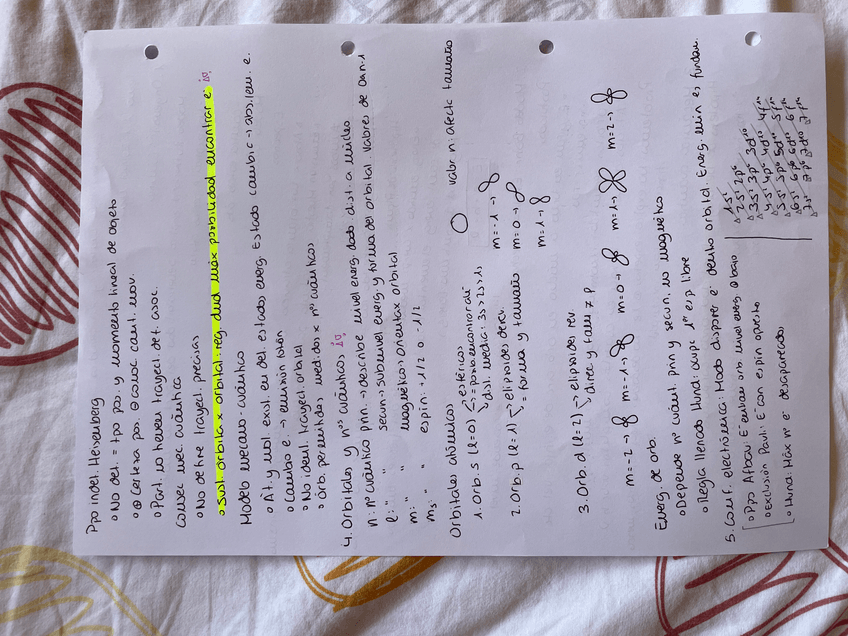 Ppo indet. Heisenberg
No det. = tpo pos. y momento lineal de objeto
⊕ Certeza pos. ⊖ conoc cant. mov.
Part. no tienen trayect. det. asoc.
Consec mec cuántica
No define trayect. precisas
Sust. orbita x orbital: reg. dnd máx probilidad encontrar e-
Modelo mecano-cuántico
Át. y mol. exist. en det. estados energ. Estado cambic → abs./em. e.
Cambio e. → emisión fotón
No ident. trayect. orbital
Orb. permitidos medidos x nºs cuánticos
4. Orbitales y nºs cuánticos
n: nº cuántico prin. → describe nivel energ. dado dist. a núcleo
l: " " secun → subnivel energ y forma del orbital. Valores de 0 a n-1
m: " " magnético: orientac orbital
ms " " espín: +1/2 o -1/2
Orbitales atómicos
valor n: afecta tamaño
1. Orb. s (l=0) → esféricos
= prob. encontrar di
dist. media: 3s > 2s > 1s
2. Orb. p (l=1) → elipsoides derev.
= forma y tamaño
m = -1 →
m = 0 →
m = 1 →
3. Orb. d (l=2) → elipsoides rev
direc y tam ≠ p
m = -2 → m = -1 → m = 0 → m = 1 → m = 2 →
Energ. de orb.
Depende nº cuánt. prin y secun. no magnético
Regla llenado Hund: ocup. 1er esp libre
5. Conf. electrónica: Modo dispone e- dentro orbital. Energ. mín es fundam.
Ppo Afbau: E- entran orb nivel energ ⊖ bajo
Exclusión Pauli: E- con espín opuesto
Hund: Máx nº e- desapareados
1s²
2s² 2p⁶
3s² 3p⁶ 3d¹⁰
4s² 4p⁶ 4d¹⁰ 4f¹⁴
5s² 5p⁶ 5d¹⁰ 5f¹⁴
6s² 6p⁶ 6d¹⁰ 6f¹⁴
7s² 7p⁶ 7d¹⁰ 7f¹⁴